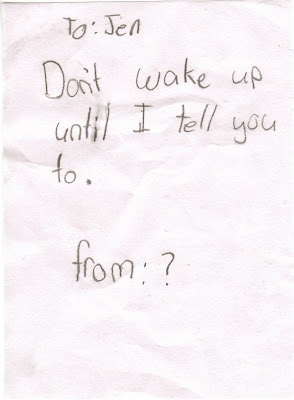 To: Jen
Don't wake up
until I tell you
to.
from: ?